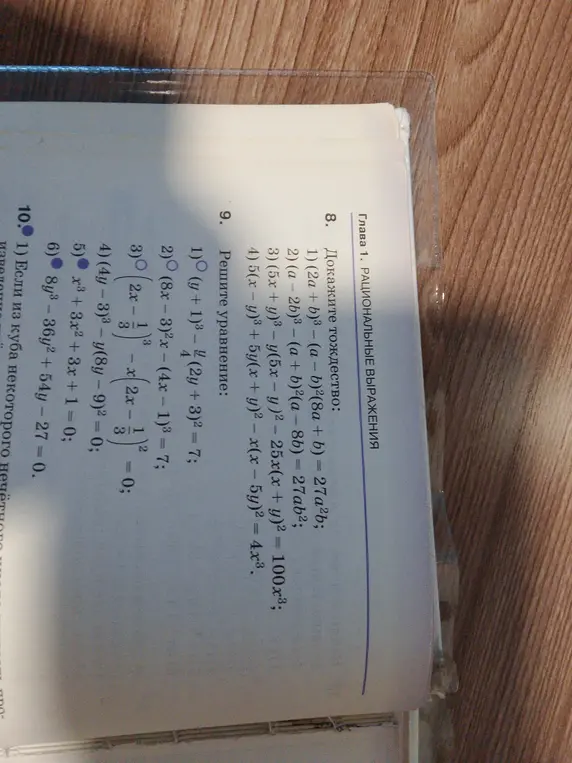 Глава 1. РАЦИОНАЛЬНЫЕ ВЫРАЖЕНИЯ
8. Докажите тождество:
1) (2a + b)³ − (a − b)²(8a + b) = 27a²b;
2) (a − 2b)³ − (a + b)²(a − 8b) = 27ab²;
3) (5x + y)³ − y(5x − y)² − 25x(x + y)² = 100x³;
4) 5(x − y)³ + 5y(x + y)² − x(x − 5y)² = 4x³.
9. Решите уравнение:
1) (y + 1)³ − y/4(2y + 3)² = 7;
2) (8x − 3)²x − (4x − 1)³ = 7;
3) (2x − 1/3)³ − x(2x − 1/3)² = 0;
4) (4y − 3)³ − y(8y − 9)² = 0;
5) x³ + 3x² + 3x + 1 = 0;
6) 8y³ − 36y² + 54y − 27 = 0.
10. 1) Если из куба некоторого нечётного